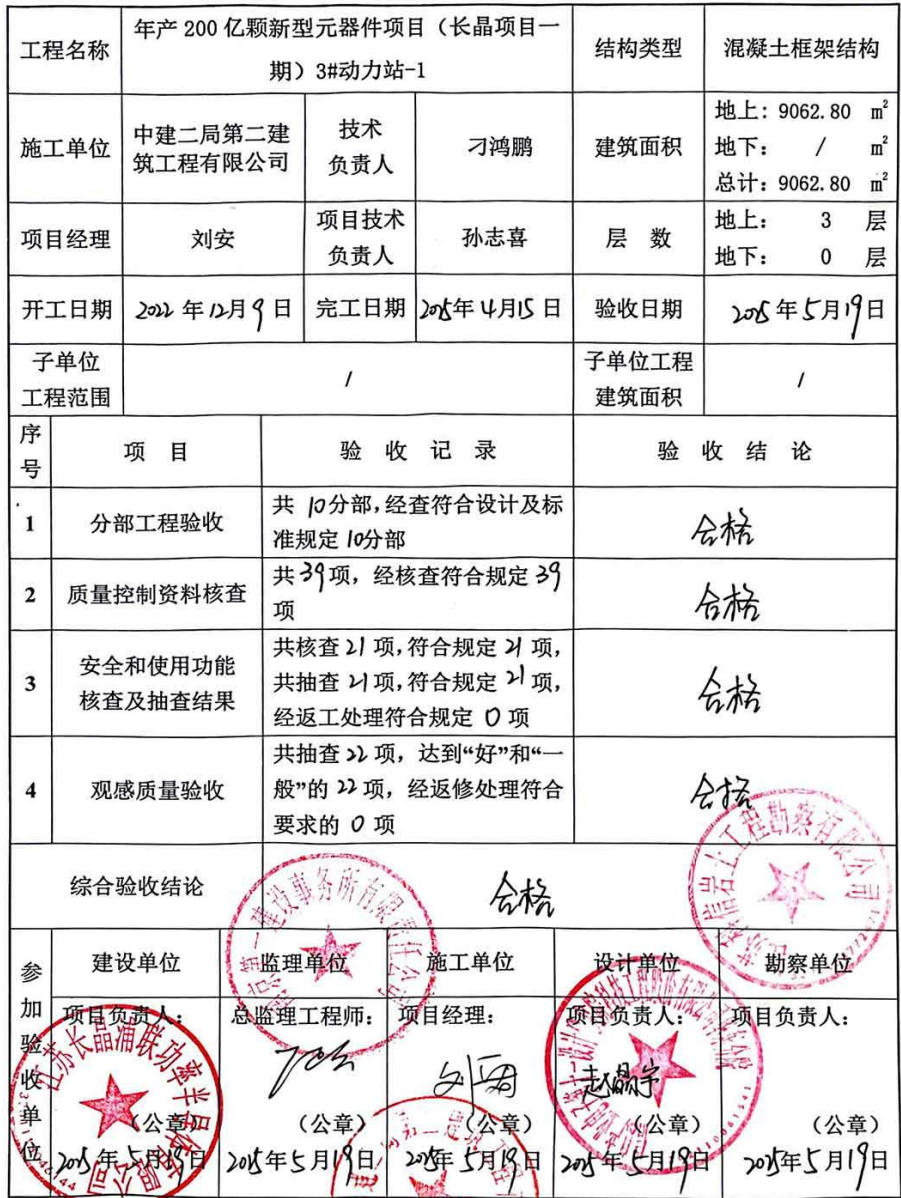 工程名称
年产 200 亿颗新型元器件项目（长晶项目一
期）3#动力站-1
结构类型
混凝土框架结构
施工单位
中建二局第二建
筑工程有限公司
技术
负责人
刁鸿鹏
建筑面积
地上：9062.80 m²
地下： / m²
总计：9062.80 m²
项目经理
刘安
项目技术
负责人
孙志喜
层 数
地上： 3 层
地下： 0 层
开工日期
2022 年 12月 9 日
完工日期
2025年 4月15 日
验收日期
2025 年 5月19日
子单位
工程范围
/
子单位工程
建筑面积
/
序
号
项 目
验 收 记 录
验 收 结 论
1
分部工程验收
共 10分部，经查符合设计及标
准规定 10分部
合格
2
质量控制资料核查
共 39 项，经核查符合规定 39
项
合格
3
安全和使用功能
核查及抽查结果
共核查 21 项，符合规定 21 项，
共抽查 21 项，符合规定 21 项，
经返工处理符合规定 0 项
合格
4
观感质量验收
共抽查 22 项，达到“好”和“一
般”的 22 项，经返修处理符合
要求的 0 项
合格
综合验收结论
合格
参加验收单位
建设单位
监理单位
施工单位
设计单位
勘察单位
项目负责人：
总监理工程师：
项目经理：
项目负责人：
项目负责人：
赵晶宇
（公章）
（公章）
（公章）
（公章）
（公章）
2025年 5月19日
2025年 5月19日
2025年 5月19日
2025年 5月19日
2025年 5月19日